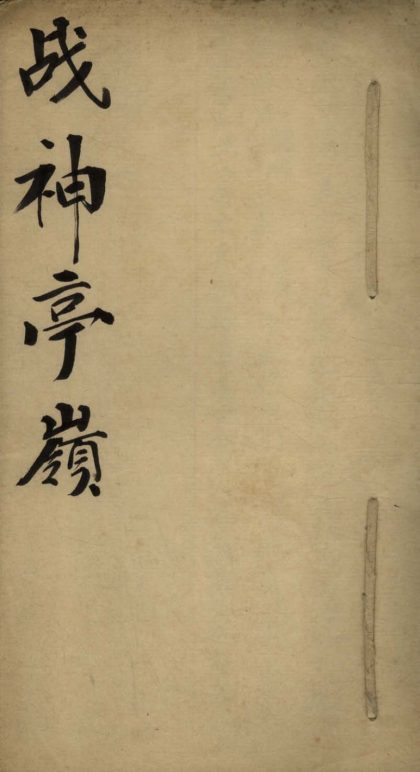 战神亭嶺